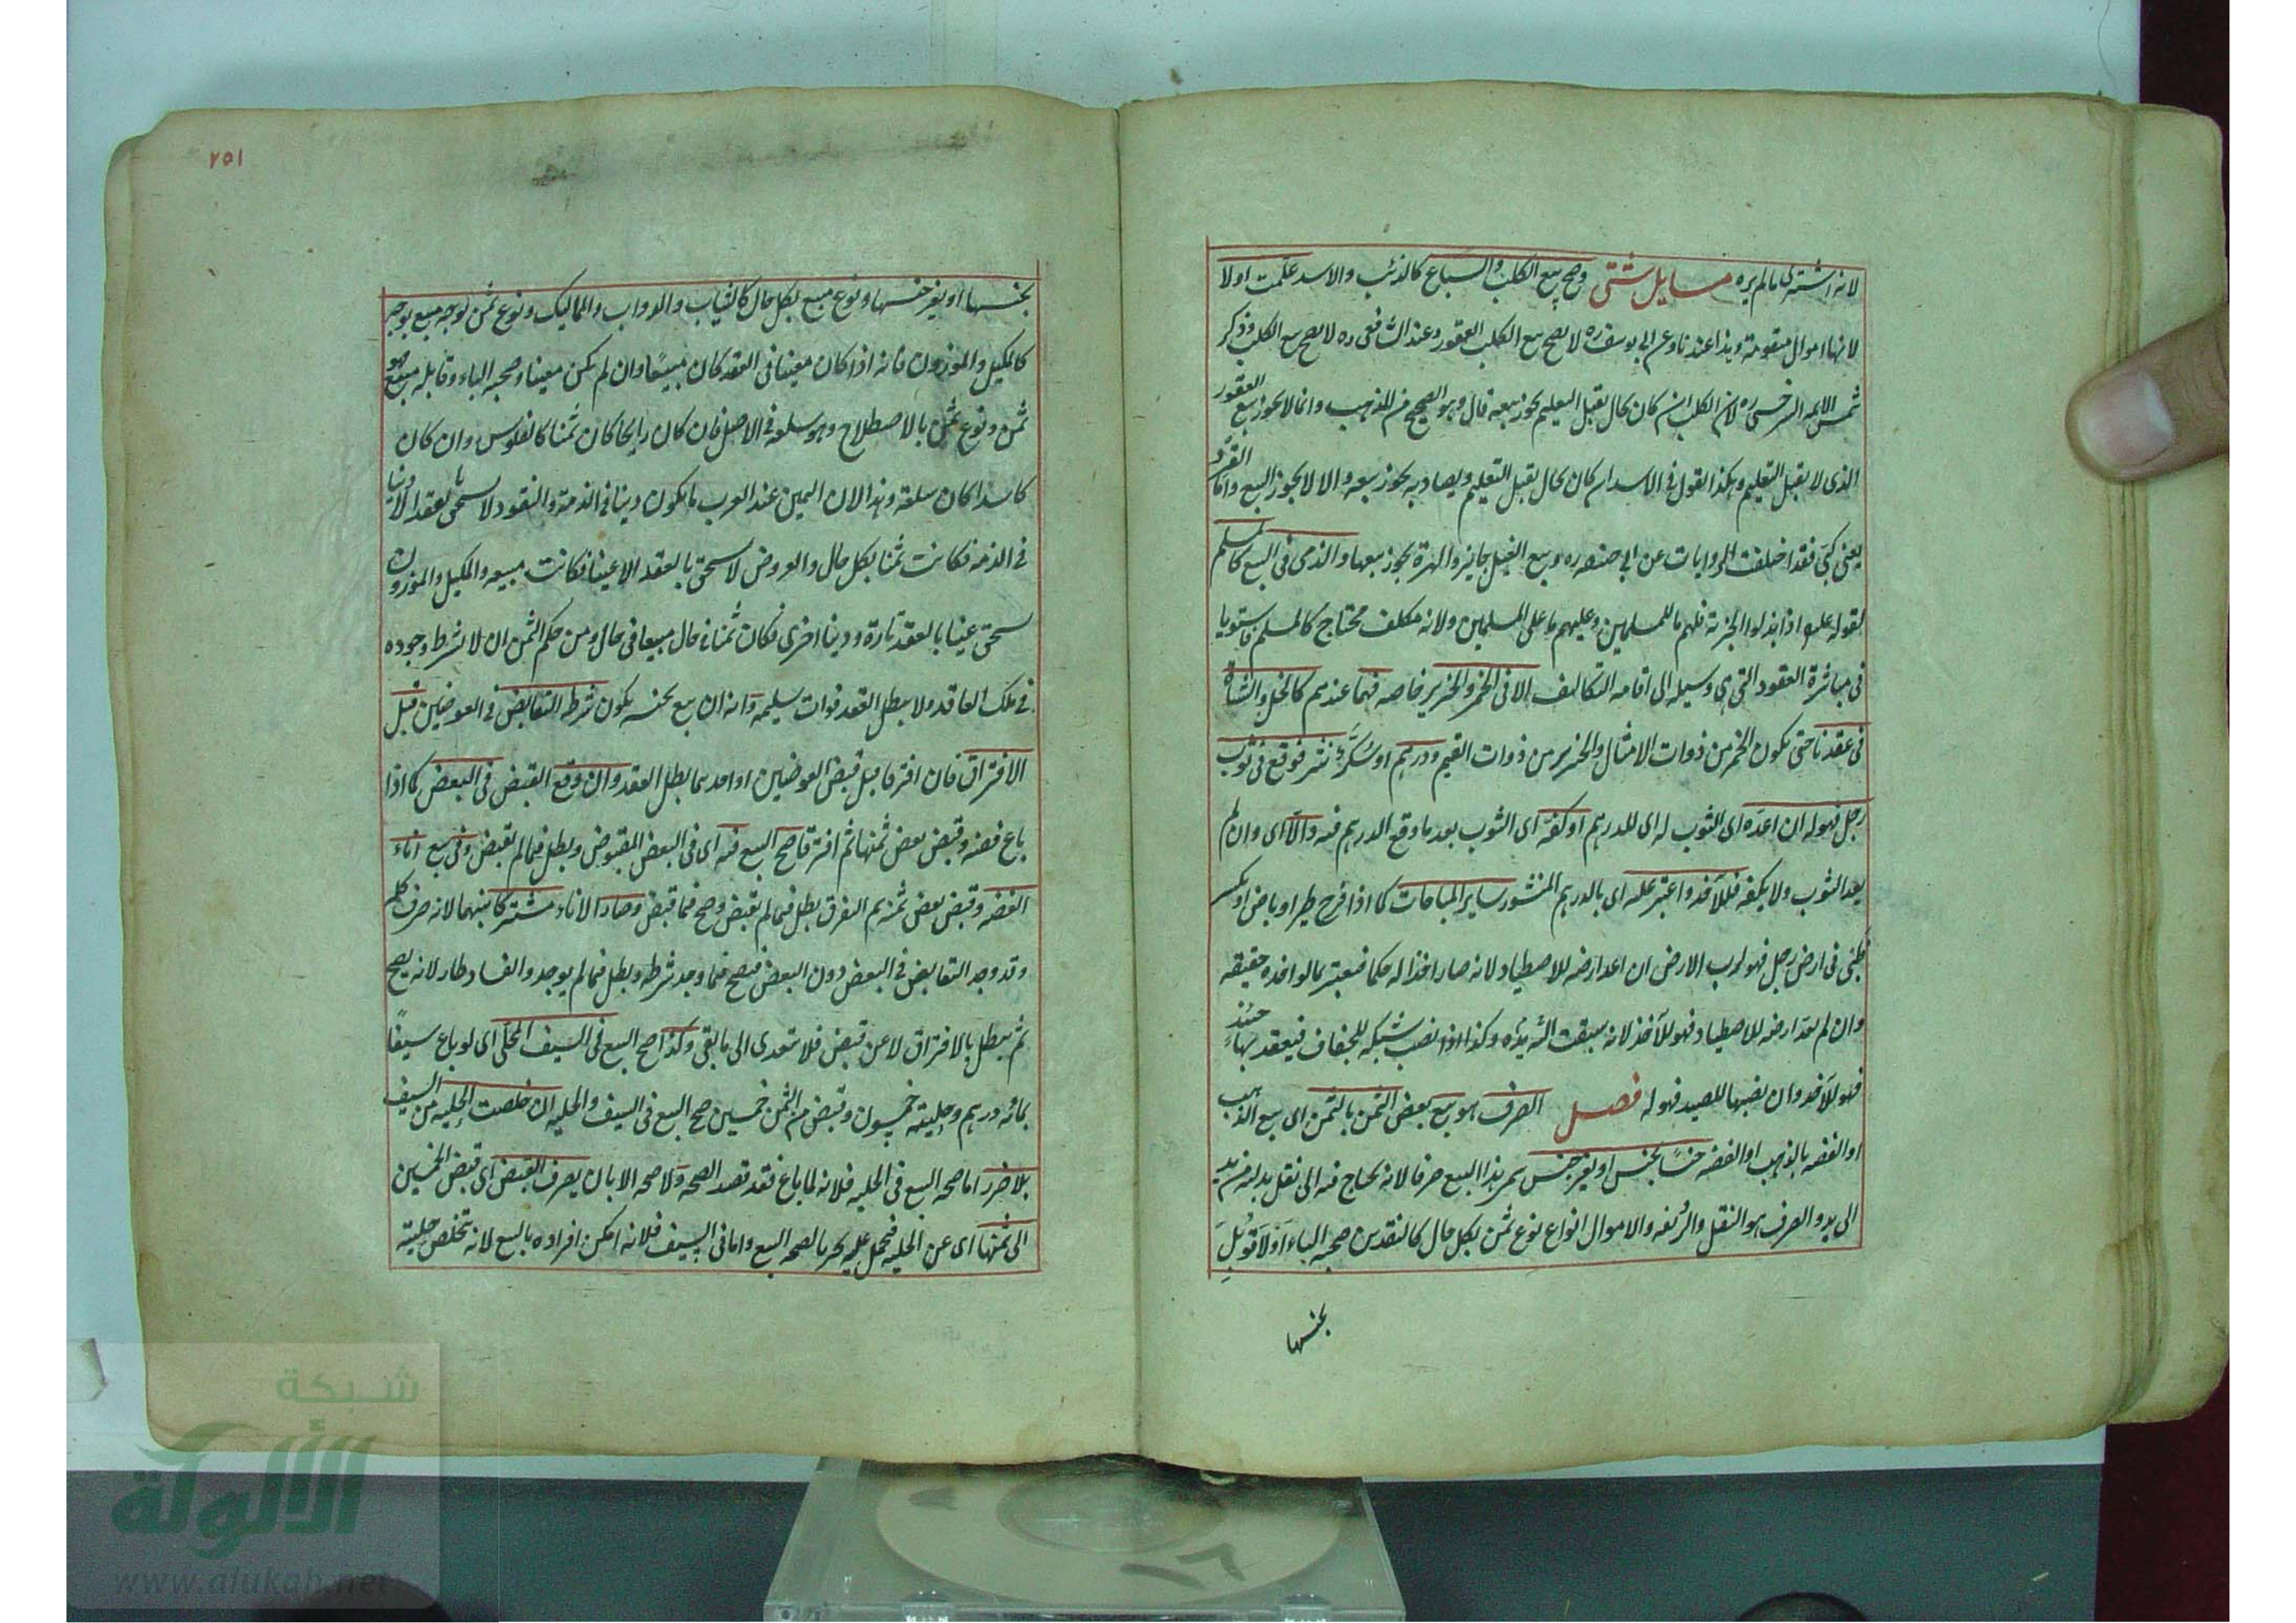 لانه اشترى ما لم يره مسايل شتى وصح بيع الكلب والسباع كالذئب والاسد علمت اولا
لانها اموال متقومة وهذا عندنا وعن ابى يوسف ره لا يصح بيع الكلب العقور وعند الشافعى ره لا يصح بيع الكلب وذكر
شمس الايمه السرخسى ره لان الكلب ان كان بحال يقبل التعليم يجوز بيعه قال وهو الصحيح من المذهب وانما لا يجوز بيع العقور
الذى لا يقبل التعليم وهكذا القول فى الاسد ان كان بحال يقبل التعليم ويصاد به يجوز بيعه والا لا يجوز البيع واما القرد
فقد اختلفت الروايات عن ابى حنيفه ره وبيع الفيل جايز والهرة يجوز بيعها والذمى فى البيع كالمسلم
لقوله عليه اذا بذلوا الجزية فلهم ما للمسلمين وعليهم ما على المسلمين ولانه مكلف محتاج كالمسلم فاستويا
فى مباشرة العقود التى هى وسيله الى اقامه التكاليف الا فى الخمر والخنزير خاصه فهما عندهم كالخل والشاة
فى عقدنا حتى يكون الخمر من ذوات الامثال والخنزير من ذوات القيم ودرهم او سكر نثر فوقع فى ثوب
رجل فهو له ان اعده اى الثوب له اى للدرهم او كفه اى الثوب بعد ما وقع الدرهم فيه والا اى وان لم
يعد الثوب ولا يكفه فللآخذ واعتبر عليه اى بالدرهم المنثور ساير المباحات كما اذا فرخ طير او باض او تكسر
ظبى فى ارض رجل فهو لرب الارض ان اعد ارضه للاصطياد لانه صار اخذا له حكما فيعتبر بما لو اخذه حقيقه
وان لم يعد ارضه للاصطياد فهو للآخذ لانه سبقت اليه يده وكذا اذا نصب شبكه للجفاف فيعقد بها حينئذ
فهو للآخذ وان نصبها للصيد فهو له فصل الصرف هو بيع بعض الثمن بالثمن اى بيع الذهب
او الفضه بالذهب او الفضه جنسا بجنس او بغير جنس سمى هذا البيع صرفا لانه يحتاج فيه الى نقل بدليه من يد
الى يد والصرف هو النقل والرد لغه والاموال انواع نوع ثمن بكل حال كالنقدين صحبه الباء اولا قوبل
بجنسها
٢٥١
بجنسها او بغير جنسها ونوع مبيع بكل حال كالثياب والدواب والمماليك ونوع ثمن بوجه مبيع بوجه
كالمكيل والموزون فانه اذا كان معينا فى العقد كان مبيعا وان لم يكن معينا وصحبه الباء وقابله مبيع فهو
ثمن ونوع ثمن بالاصطلاح وهو سلعه فى الاصل فان كان رايجا كان ثمنا كالفلوس وان كان
كاسدا كان سلعة وهذا لان الثمن عند العرب ما يكون دينا فى الذمة والنقود لا تستحق بالعقد الا دينا
فى الذمه فكانت ثمنا بكل حال والعروض لا تستحق بالعقد الا عينا فكانت مبيعه والمكيل والموزون
يستحق عينا بالعقد تارة ودينا اخرى فكان ثمنا فى حال مبيعا فى حال ومن حكم الثمن ان لا يشترط وجوده
فى ملك العاقد ولا يبطل العقد فوات تسليمه وانه ان بيع بجنسه يكون شرط التقابض فى العوضين قبل
الافتراق فان افترقا قبل قبض العوضين او احدهما بطل العقد وان وقع القبض فى البعض كما اذا
باع فضه وقبض بعض ثمنها ثم افترقا صح البيع فيه اى فى البعض المقبوض وبطل فيما لم يقبض وفى بيع اناء
الفضه وقبض بعض ثمنه ثم التفرق بطل فيما لم يقبض وصح فيما قبض وصار الاناء مشتركا بينهما لانه صرف كله
وقد وجد التقابض فى البعض دون البعض فيصح فيما وجد شرطه وبطل فيما لم يوجد والفساد طار لانه يصح
ثم يبطل بالافتراق لا عن قبض فلا يتعدى الى ما بقى وكذا صح البيع فى السيف المحلى اى لو باع سيفا
بمائه درهم وحليته خمسون وقبض من الثمن خمسين صح البيع فى السيف والحليه ان خلصت الحليه من السيف
بلا ضرر اما صحه البيع فى الحليه فلانه لما باع فقد قصد الصحه ولا صحه الا بان يصرف القبض اى قبض الخمسين
الى ثمنها اى عن الحليه فيحمل عليه تحريا لصحه البيع واما فى السيف فلانه امكن افراده بالبيع لانه تتخلص حليته
شبكة
الألوكة
www.alukah.net